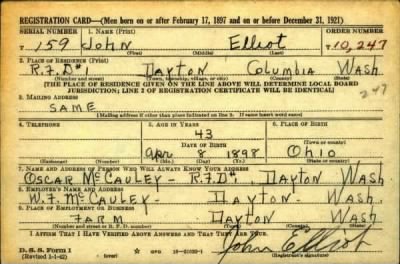 REGISTRATION CARD—(Men born on or after February 17, 1897 and on or before December 31, 1921)
SERIAL NUMBER 1. NAME (Print) ORDER NUMBER
T 159 John Elliot T 10,247
(First) (Middle) (Last)
2. PLACE OF RESIDENCE (Print)
R.F.D. Dayton Columbia Wash
(Number and street) (Town, township, village, or city) (County) (State)
[THE PLACE OF RESIDENCE GIVEN ON THE LINE ABOVE WILL DETERMINE LOCAL BOARD
JURISDICTION; LINE 2 OF REGISTRATION CERTIFICATE WILL BE IDENTICAL]
247
3. MAILING ADDRESS
SAME
[Mailing address if other than place indicated on line 2. If same insert word same]
4. TELEPHONE 5. AGE IN YEARS 6. PLACE OF BIRTH
43
DATE OF BIRTH
Apr 8 1898 Ohio
(Exchange) (Number) (Mo.) (Day) (Yr.) (State or country)
7. NAME AND ADDRESS OF PERSON WHO WILL ALWAYS KNOW YOUR ADDRESS
Oscar McCauley - R.F.D. Dayton Wash
8. EMPLOYER'S NAME AND ADDRESS
W.F. McCauley - Dayton - Wash
9. PLACE OF EMPLOYMENT OR BUSINESS
Farm Dayton Wash
(Number and street or R. F. D. number) (Town) (County) (State)
I AFFIRM THAT I HAVE VERIFIED ABOVE ANSWERS AND THAT THEY ARE TRUE.
D. S. S. Form 1
(Revised 1-1-42) (over) GPO
John Elliot
(Registrant's signature)